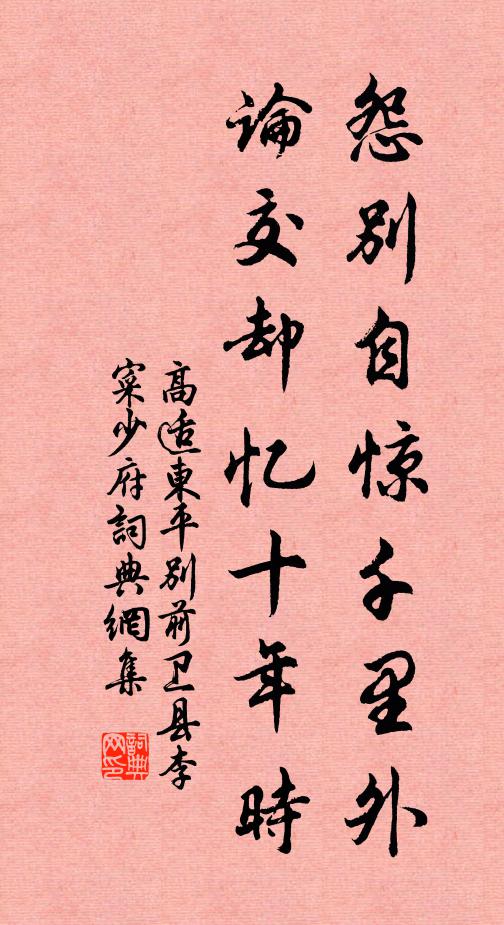 怨别自惊千里外
論交却忆十年時
高适東平别前卫县李
寀少府詞典網集
詞典
网印